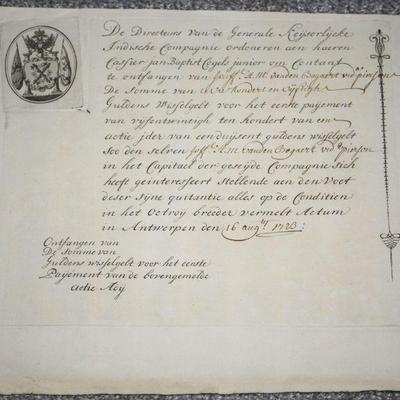 De Directeurs van de Generale Keyserlycke
Indische Compagnie ordoneren aen haeren
Cassier jan Baptist Cogels junior om Contant
te ontfangen van Jouff. A.M. vanden Bogaert vid.
De Somme van hondert en
Guldens Wisselgelt voor het eerste payement
van vyfentwintigh ten hondert van een
actie jder van een duysent guldens wisselgelt
Soo den selven Jouff. A.M. vanden Bogaert vid.
in het Capitael der geseyde Compagnie sich
heeft geinteresseert Stellende aen den Voet
deser syne quitantie alles op de Conditien
in het Octroy breeder vermelt Actum
in Antwerpen den 16 augti 1723:
Ontfangen van
De Somme van
Guldens wisselgelt voor het eerste
Payement van de bovengemelde
actie